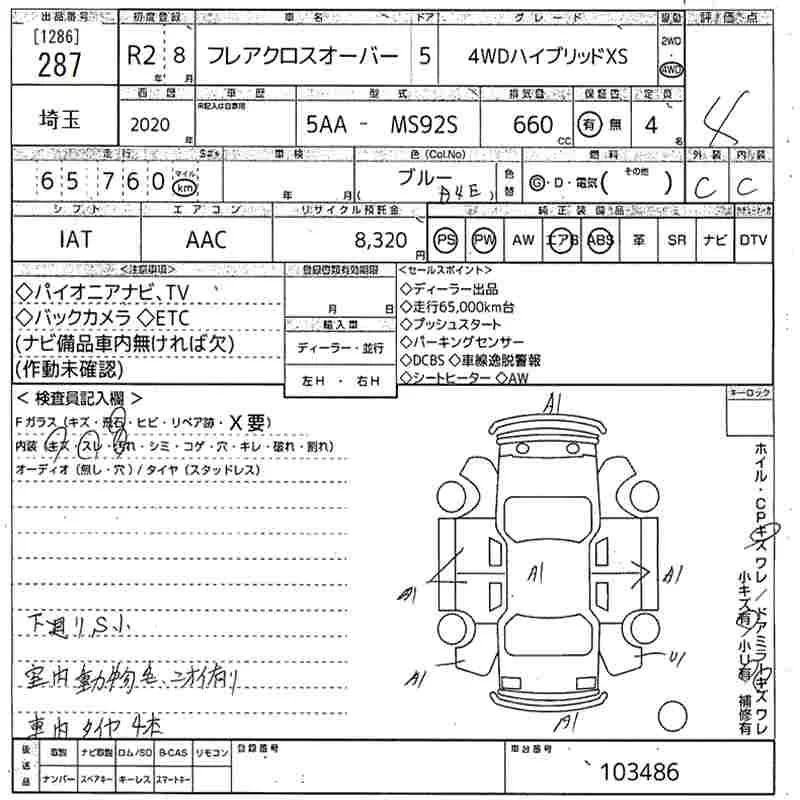 出品番号 初度登録 車名 ドア グレード 駆動 評価点
[1286]
287 R2 8 フレアクロスオーバー 5 4WDハイブリッドXS 2WD 4WD
年 月
4
西暦 車歴 型式 排気量 保証書 定員
埼玉 2020 年 未記入は自家用 5AA - MS92S 660 CC 有 無 4 名
走行 S#6 車検 色(Col.No) 燃料 外装 内装
65760 マイル km 年 月 ブルー 色替 G・D・電気( その他 ) C C
シフト エアコン リサイクル預託金 純正装備品
IAT AAC 8,320円 PS PW AW エアB ABS 革 SR ナビ DTV
<注意事項> 登録書類有効期限 <セールスポイント>
◇パイオニアナビ、TV
◇バックカメラ ◇ETC
(ナビ備品車内無ければ欠)
(作動未確認)
月 日
輸入車
ディーラー・並行
左H ・ 右H
◇ディーラー出品
◇走行65,000km台
◇プッシュスタート
◇パーキングセンサー
◇DCBS ◇車線逸脱警報
◇シートヒーター ◇AW
<検査員記入欄> キーロック
Fガラス(キズ・飛石・ヒビ・リペア跡・X要)
内装(キズ・スレ・汚れ・シミ・コゲ・穴・キレ・破れ・割れ)
オーディオ(無し・穴)/タイヤ(スタッドレス)
A1
A1
A1
A1
A1
U1
A1
ホイル・CPキズ ワレ/ドアミラーキズ ワレ
小キズ有/小U有 補修有
下廻りS小
室内動物毛、ニオイ有り
車内タイヤ4本
後送品 取説 ナビ取説 ロム/SD B-CAS リモコン 登録番号 車台番号
ナンバー スペアキー キーレス スマートキー : 103486